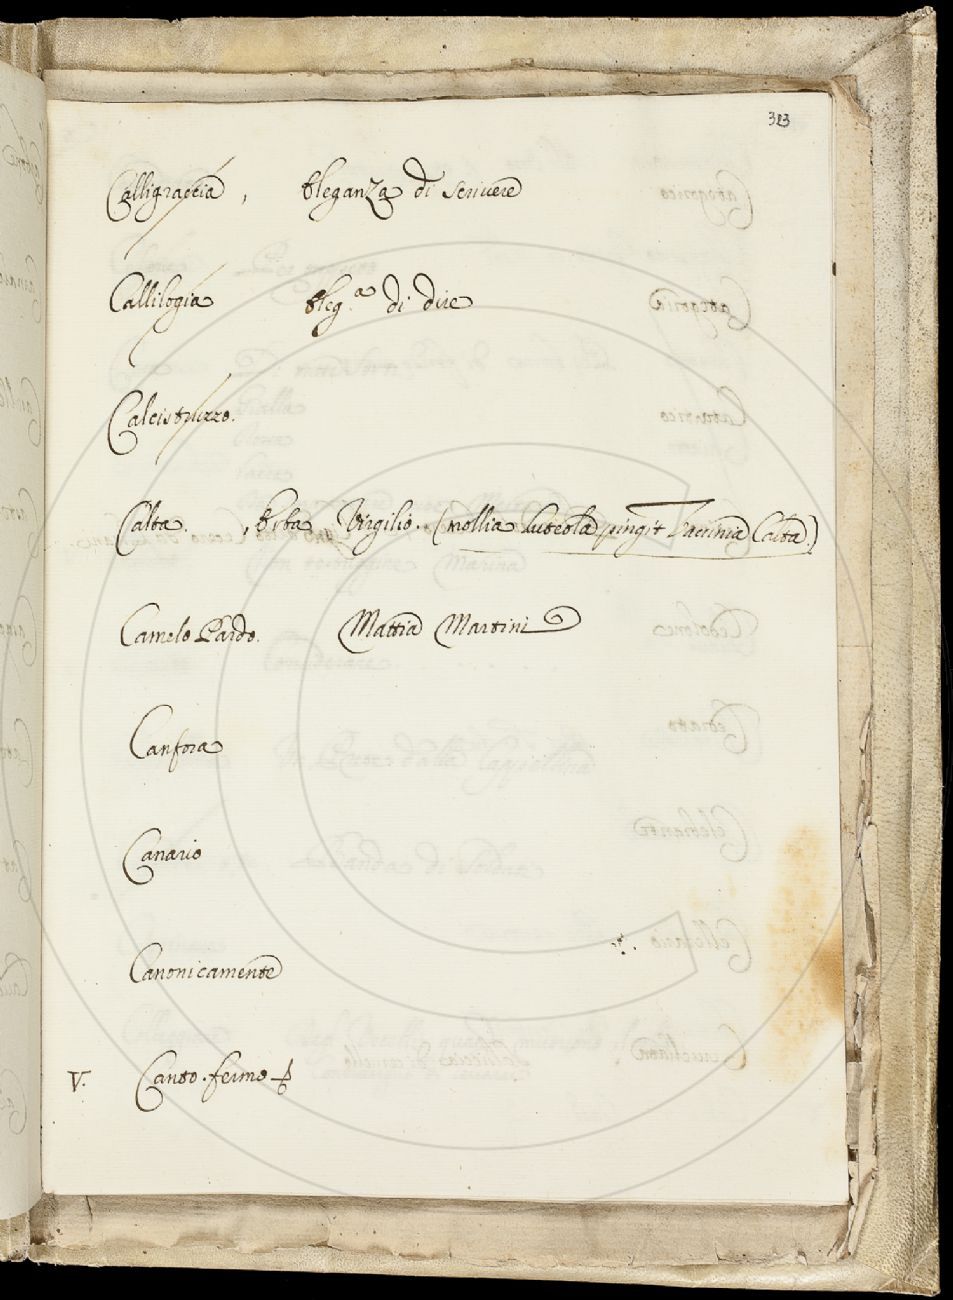 313
Calligraccia, Eleganza di scriuere
Callilogia Eleg.a di dire
Calcistruzzo.
Calta. , Erba Virgilio. (mollia Luteola pingit Vaccinia Calta.)
Camelo Pardo. Mattia Martini
Canfora
Canario
Canonicamente
V. Canto. fermo